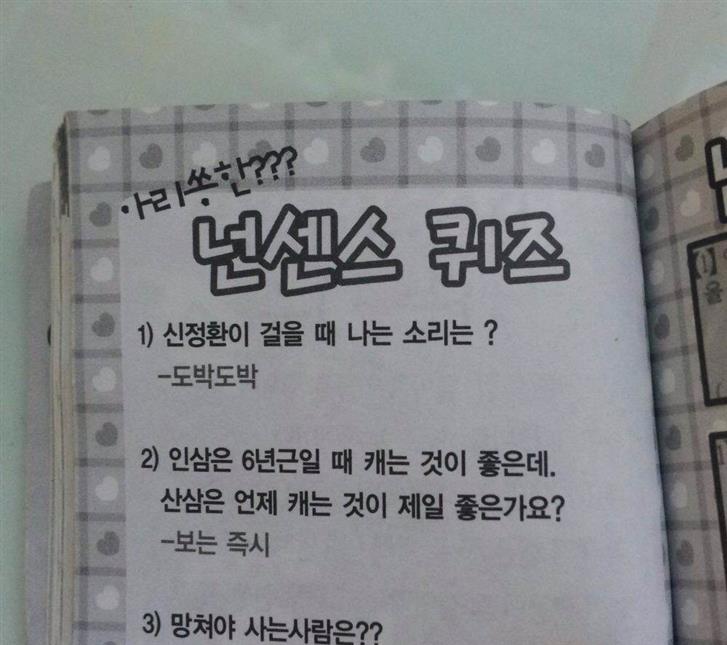 아리쏭한???
넌센스 퀴즈
1) 신정환이 걸을 때 나는 소리는 ?
-도박도박
2) 인삼은 6년근일 때 캐는 것이 좋은데.
산삼은 언제 캐는 것이 제일 좋은가요?
-보는 즉시
3) 망쳐야 사는사람은??